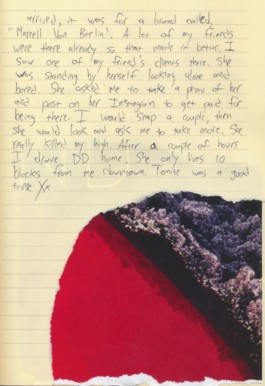 arrived, it was for a brand called,
"Marrell Von Berlin". A lot of my friends
were there already so that made it better. I
saw one of my friend's clients there. She
was standing by herself looking alone and
bored. She asked me to take a photo of her
and post on her Instagram to get paid for
being there. I would snap a couple, then
she would look and ask me to take more. She
really killed my high. After a couple of hours
I drove DD home. She only lives 10
blocks from me downtown. Tonite was a good
time Xx